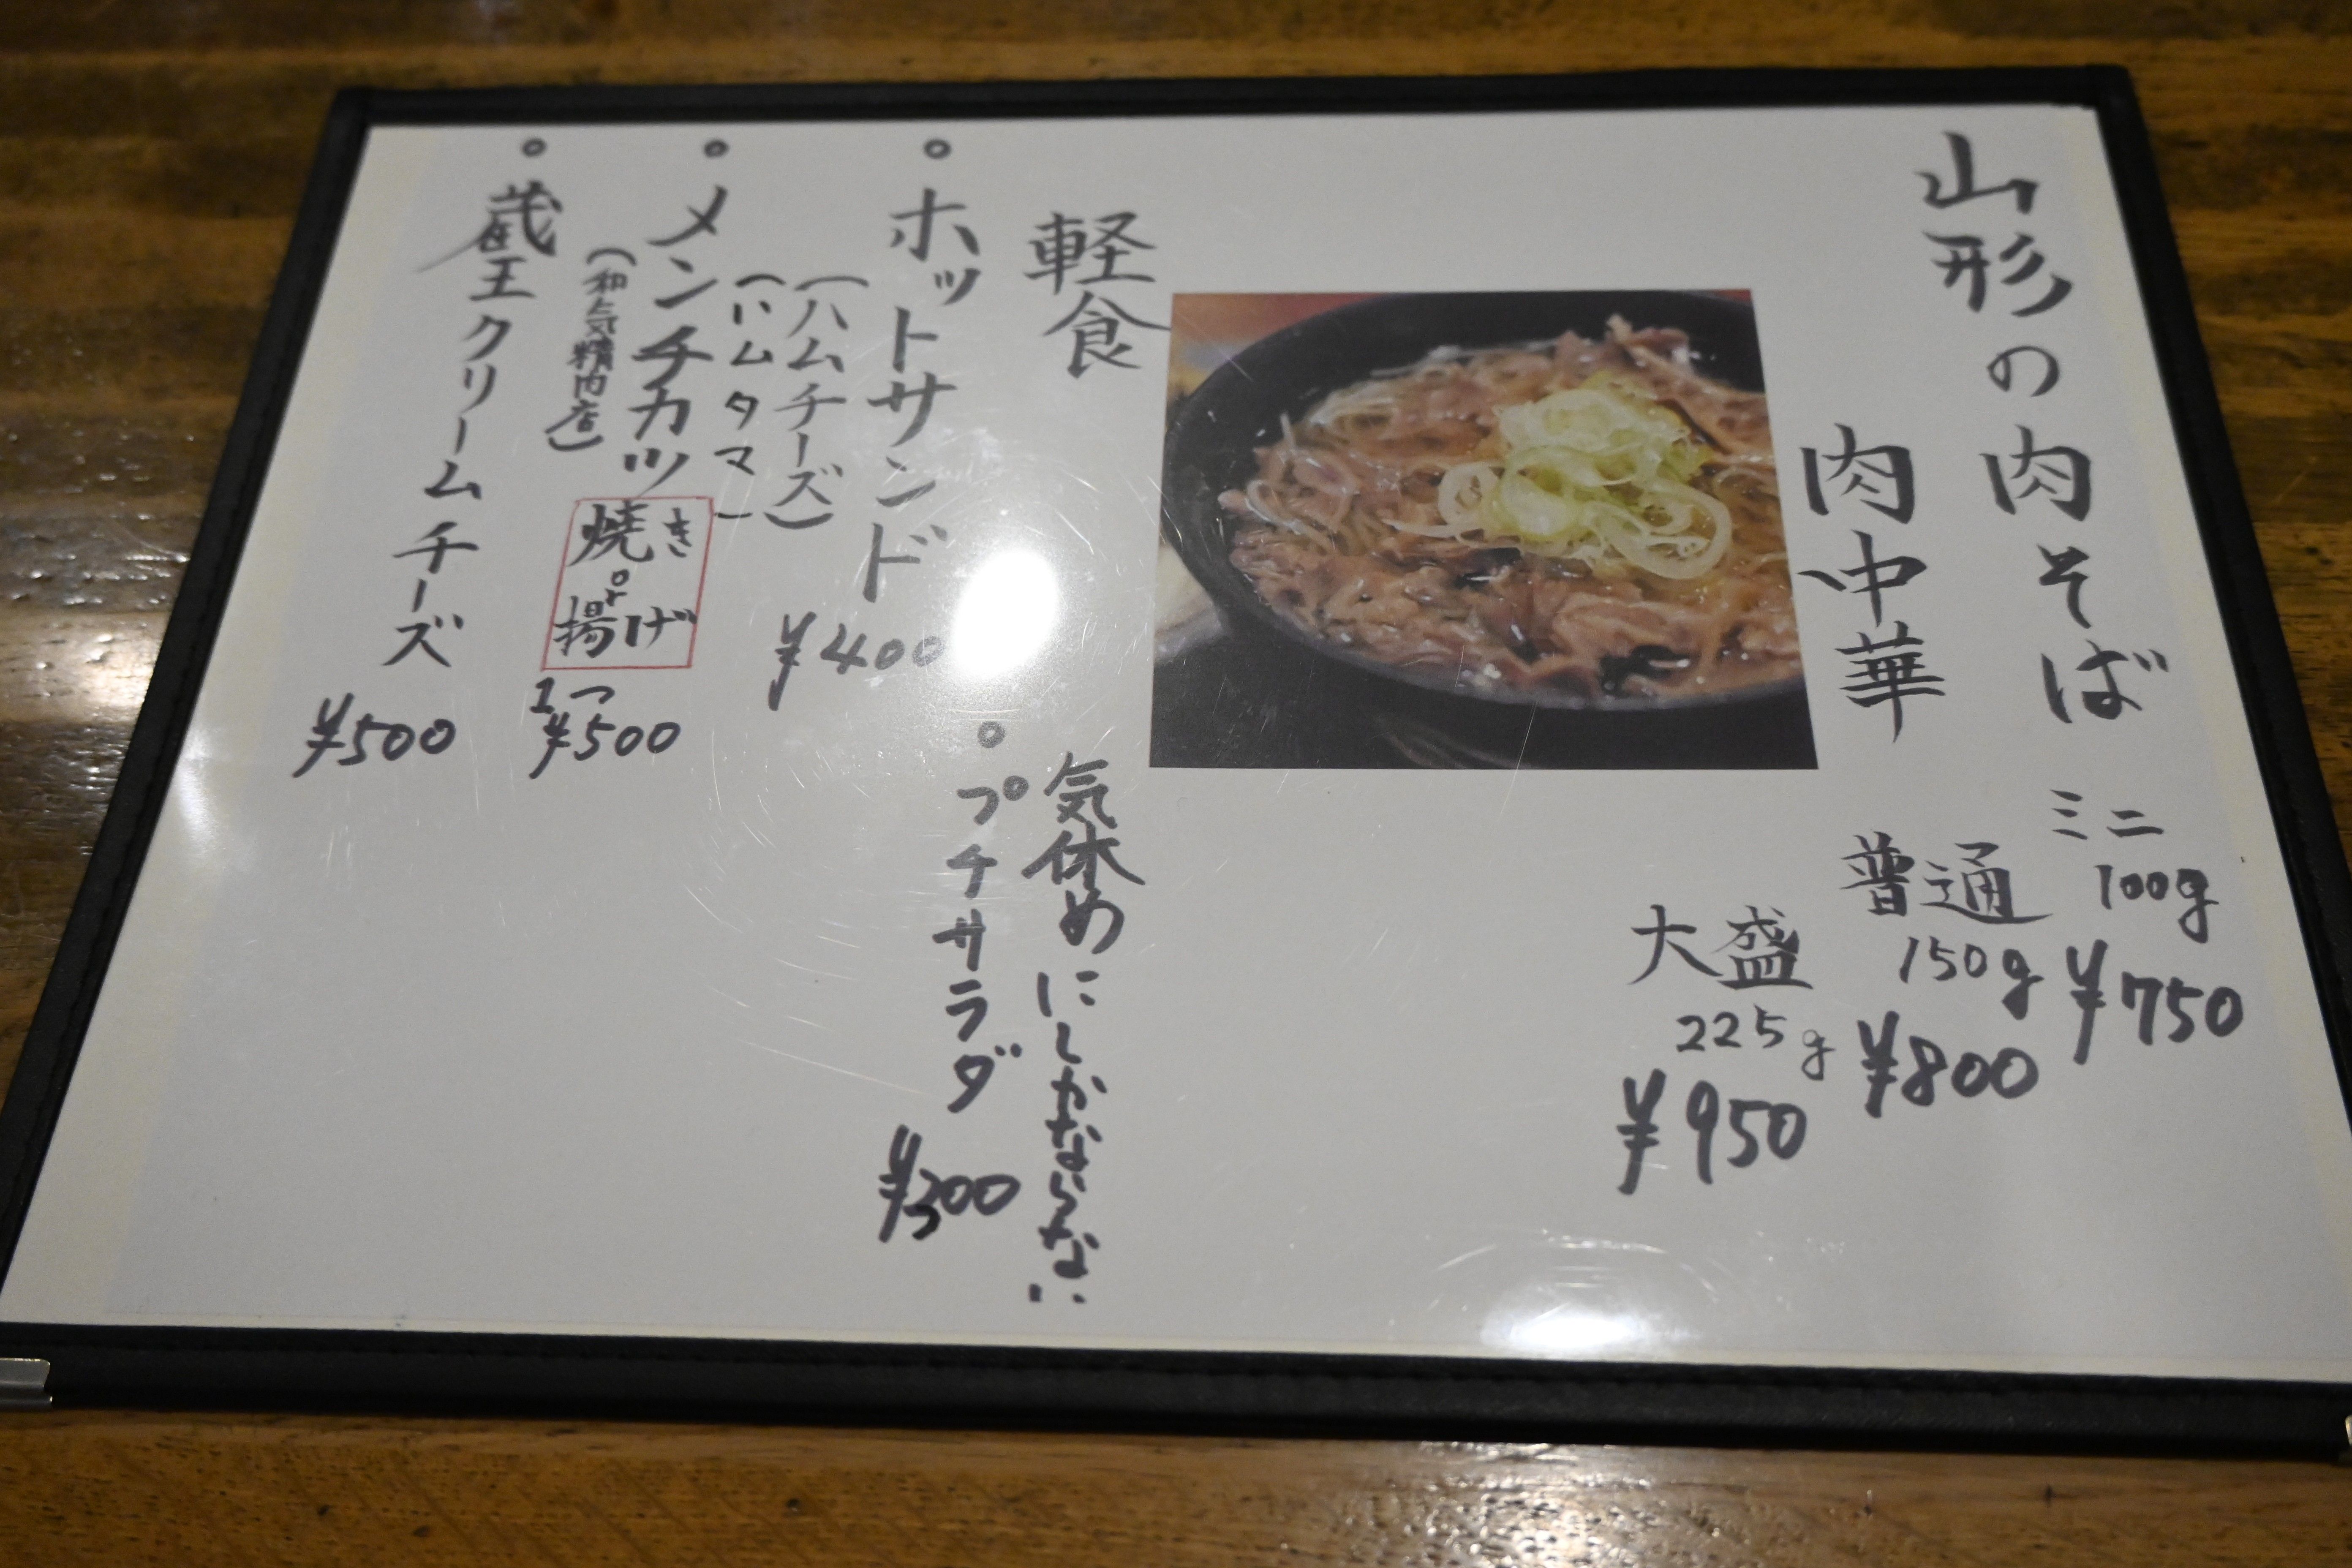 山形の肉そば
肉中華
ミニ
100g
¥750
普通
150g
¥800
大盛
225g
¥950
軽食
。ホットサンド
(ハムチーズ)
(ハムタマ)
¥400
気休めにしかならない
。プチサラダ
¥300
。メンチカツ
(和気精肉店)
焼き
or
揚げ
1つ
¥500
。蔵王クリームチーズ
¥500